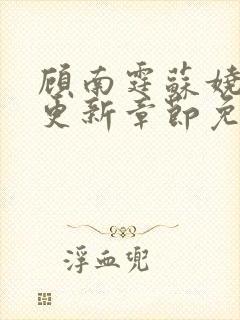 顾南霆蘇娆
更新章節免
浮血兜